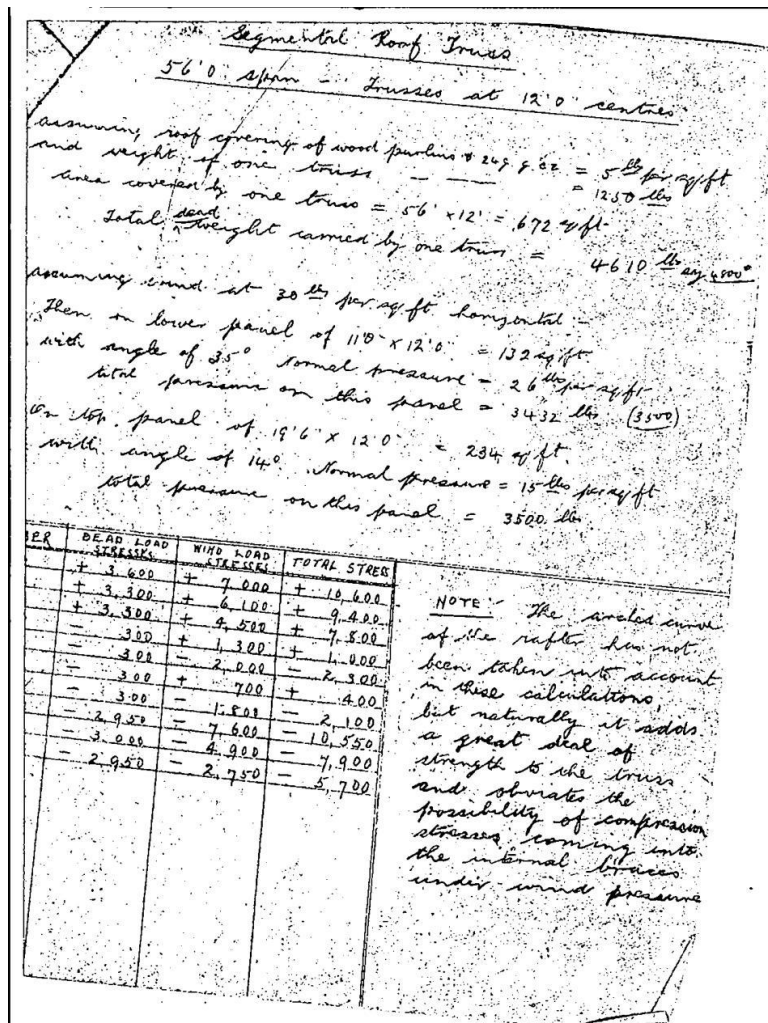 Segmental Roof Truss
56'0" span - Trusses at 12'0" centres
Assuming roof covering of wood purlins & 24 g. g. = 5 lbs per sq ft
and weight of one truss - — = 1250 lbs
Area covered by one truss = 56' x 12' = 672 sq ft.
Total dead weight carried by one truss = 4610 lbs say 4800#
Assuming wind at 30 lbs per sq ft. horizontal -
Then on lower panel of 11'0" x 12'0" = 132 sq ft
with angle of 35° Normal pressure = 26 lbs per sq ft
total pressure on this panel = 3432 lbs (3500)
On top panel of 19'6" x 12'0" = 234 sq ft.
with angle of 14° Normal pressure = 15 lbs per sq ft
total pressure on this panel = 3500 lbs
BER DEAD LOAD STRESSES WIND LOAD STRESSES TOTAL STRESS
+ 3,600 + 7,000 + 10,600
+ 3,300 + 6,100 + 9,400
+ 3,300 + 4,500 + 7,800
- 300 + 1,300 + 1,000
- 300 - 2,000 - 2,300
- 300 + 700 + 400
- 300 - 1,800 - 2,100
- 2,950 - 7,600 - 10,550
- 3,000 - 4,900 - 7,900
- 2,950 - 2,750 - 5,700
NOTE :- The arched curve
of the rafter has not
been taken into account
in these calculations,
but naturally it adds
a great deal of
strength to the truss
and obviates the
possibility of compression
stresses coming into
the internal braces
under wind pressure